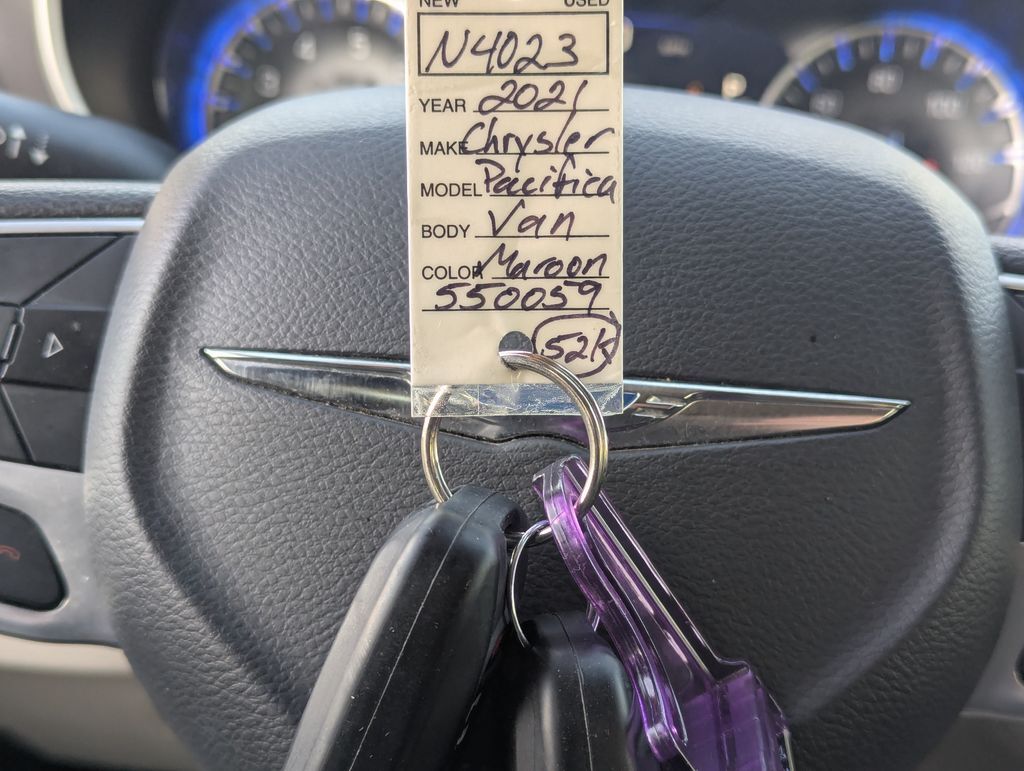 NEW USED
N4023
YEAR 2021
MAKE Chrysler
MODEL Pacifica
BODY Van
COLOR Maroon
550059
52K
4 5
3
80
100